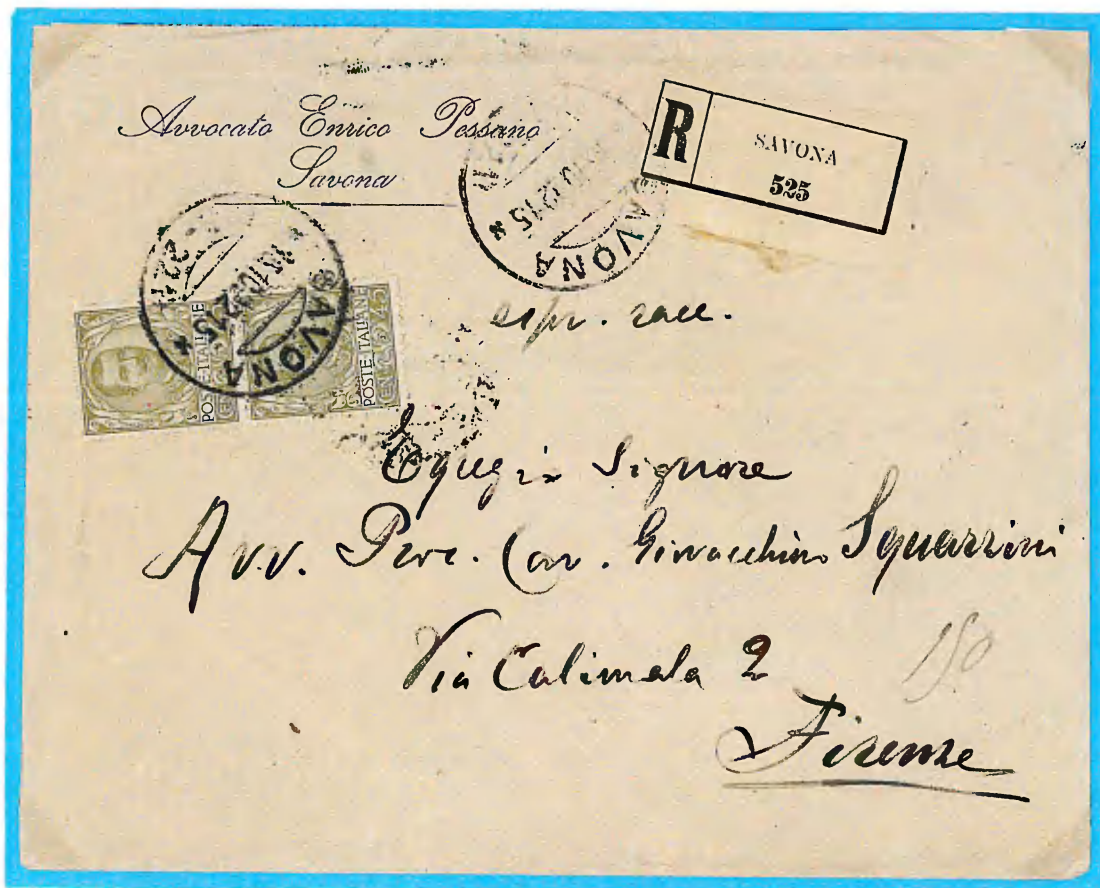 Avvocato Enrico Pessano
Savona
R
SAVONA
525
SAVONA
SAVONA
22
POSTE ITALIANE
POSTE ITALIANE
CENT. 45
espr. racc.
Egregio Signore
Avv. Proc. Cav. Giovacchino Squarzini
Via Calimala 2
150
Firenze